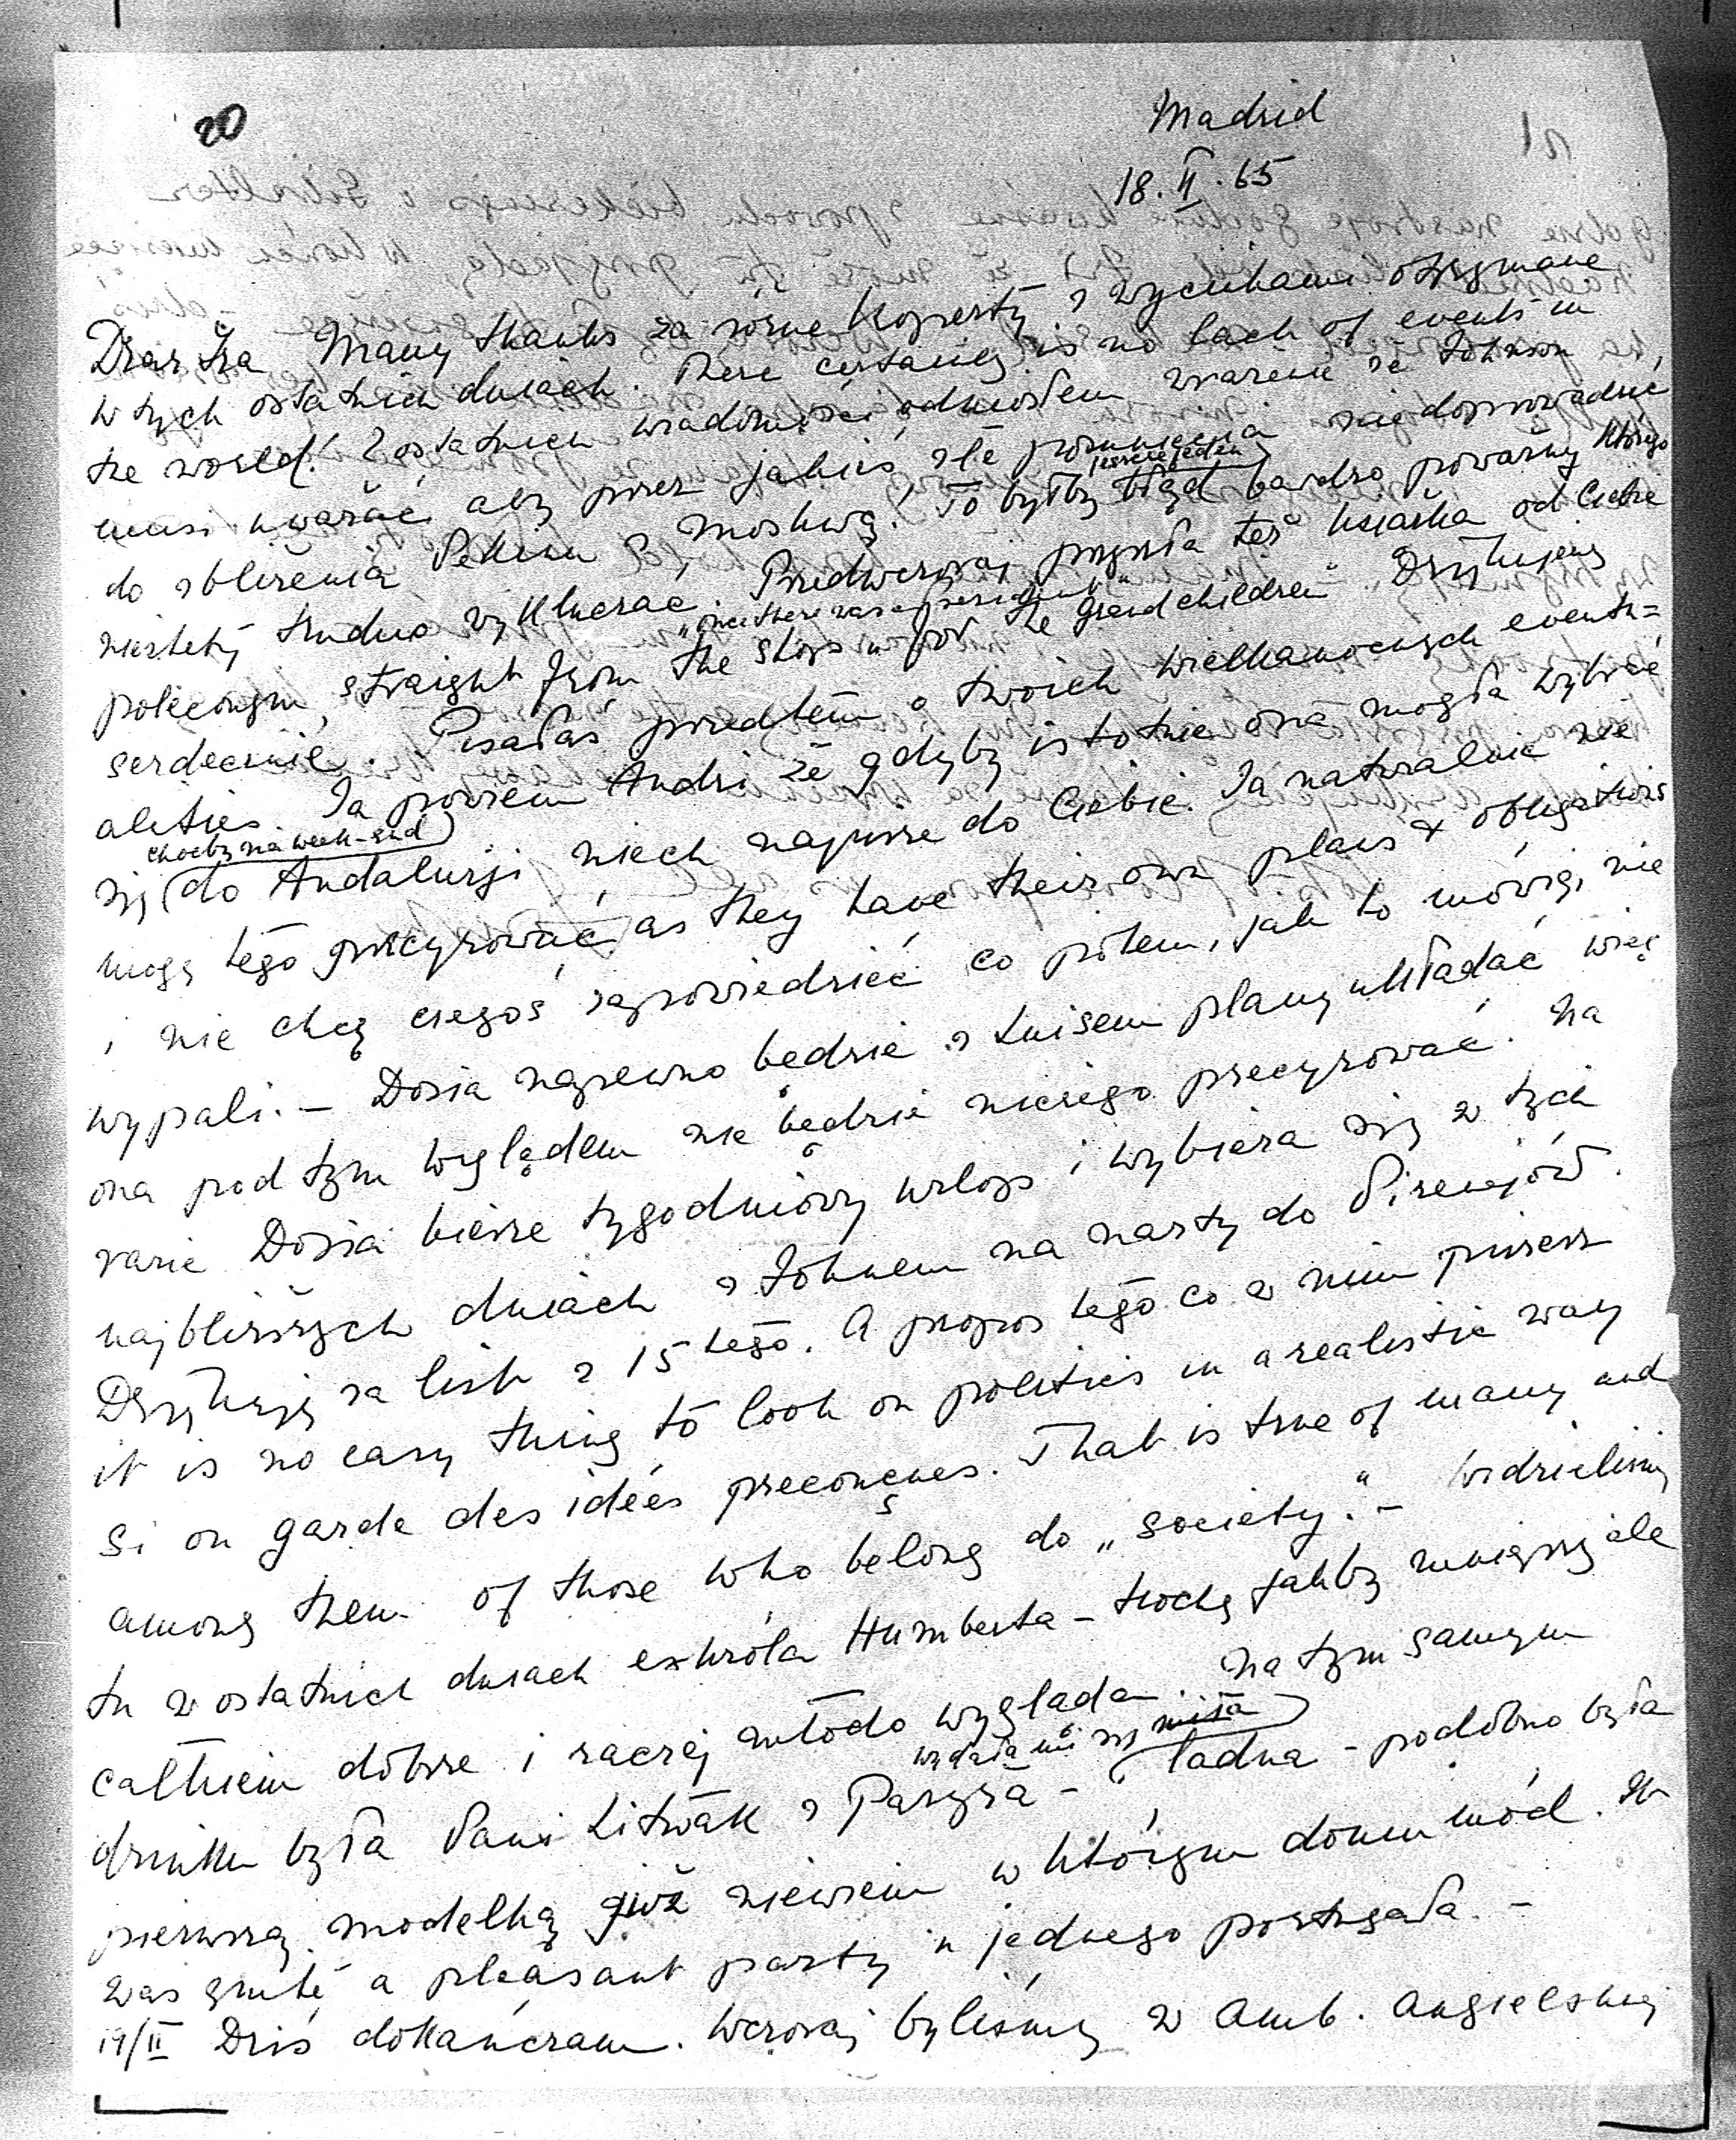 20
Madrid
18.II.65
Dear Iza Many thanks za różne koperty z wycinkami otrzymane
w tych ostatnich dniach. There certainly is no lack of events in
the world! Z ostatnich wiadomości odniosłem wrażenie że Johnson
musi uważać aby przez jakieś złe posunięcia nie doprowadzić
do zbliżenia Pekin z Moskwą. To byłby jeszcze jeden błąd bardzo poważny którego
niestety trudno wykluczać. Przedwczoraj przyszła też książka od Ciebie
poleconym, straight from the shops "once there was a president" for the grandchildren. Dziękujemy
serdecznie. Pisałaś przedtem o twoich wielkanocnych eventu=
alities. Ja powiem Andzi że gdyby istotnie ona mogła wybrać
się (choćby na week-end) do Andaluzji niech napisze do Ciebie. Ja naturalnie nie
mogę tego precyzować as they have their own plans & obligations
i nie chcę czegoś zapowiedzieć co potem, jak to mówią, nie
wypali. – Dosia napewno będzie z Luisem plany układać więc
ona pod tym względem nie będzie niczego precyzować. Na
razie Dosia bierze tygodniowy urlop i wybiera się w tych
najbliższych dniach z Johnem na narty do Pirenejów.
Dziękuję za list z 15 tego. A propos tego co w nim piszesz
it is no easy thing to look on politics in a realistic way
si on garde des idées preconçues. That is true of many and
among them of those who belong do „society." – Widzieliśmy
tu w ostatnich dniach exkróla Humberta – trochę jakby mniejszy ale
całkiem dobrze i raczej młodo wygląda. Na tym samym
drinku była Pani Litwak z Paryża – wydała mi się miła ładna – podobno była
pierwszą modelką już niewiem w którym domu mód. It
was quite a pleasant party u jednego portugala. –
19/II Dziś dokańczam. Wczoraj byliśmy w Amb. Angielskiej